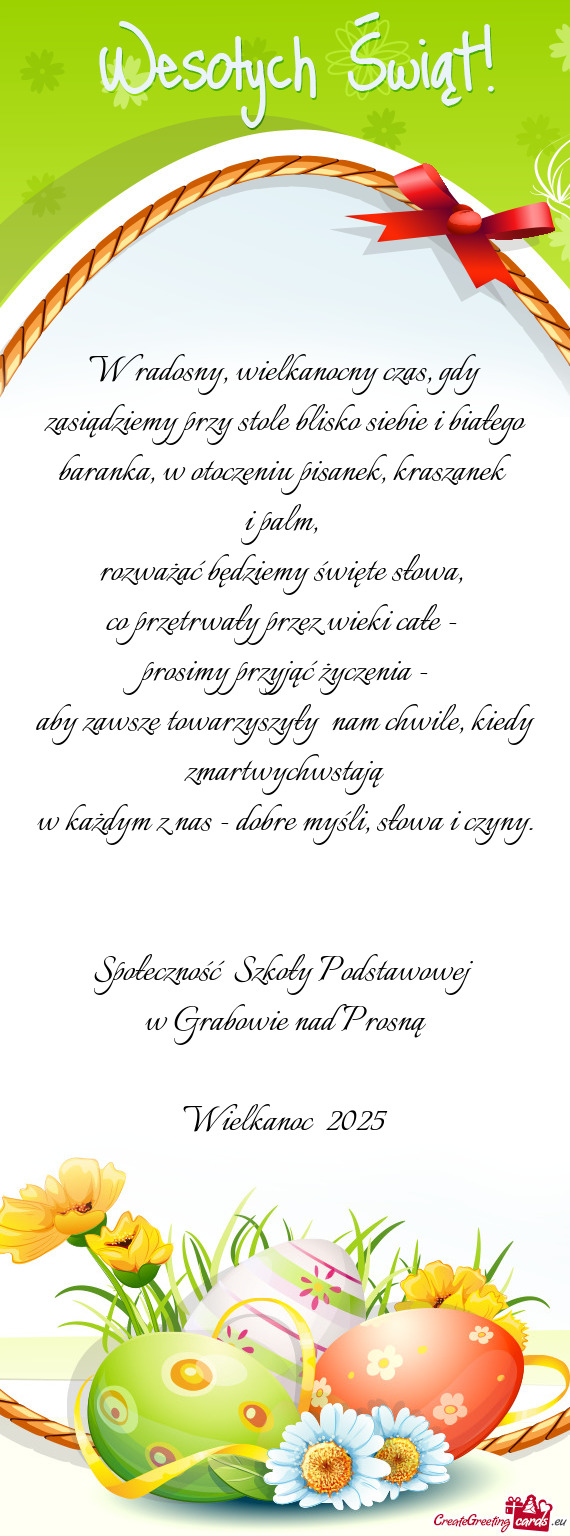 Wesołych Świąt!
W radosny, wielkanocny czas, gdy
zasiądziemy przy stole blisko siebie i białego
baranka, w otoczeniu pisanek, kraszanek
i palm,
rozważać będziemy święte słowa,
co przetrwały przez wieki całe -
prosimy przyjąć życzenia -
aby zawsze towarzyszyły nam chwile, kiedy
zmartwychwstają
w każdym z nas - dobre myśli, słowa i czyny.
Społeczność Szkoły Podstawowej
w Grabowie nad Prosną
Wielkanoc 2025
CreateGreeting cards .eu